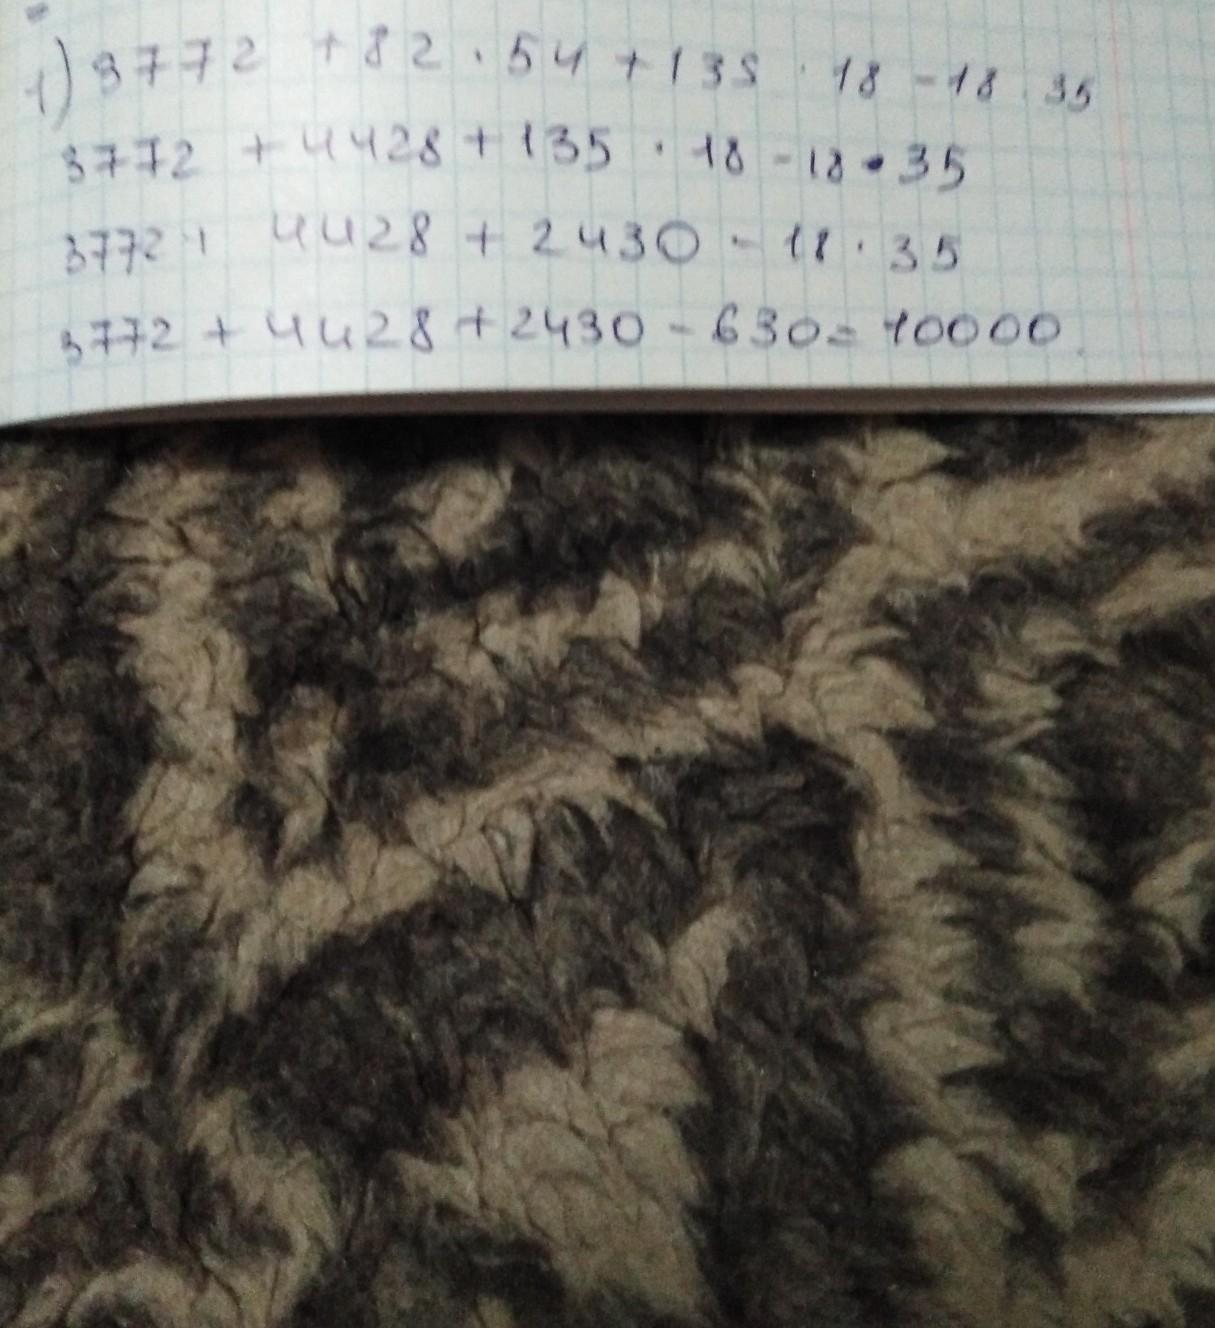 1) 3772 + 82 · 54 + 135 · 18 - 18 · 35
3772 + 4428 + 135 · 18 - 18 · 35
3772 + 4428 + 2430 - 18 · 35
3772 + 4428 + 2430 - 630 = 10000